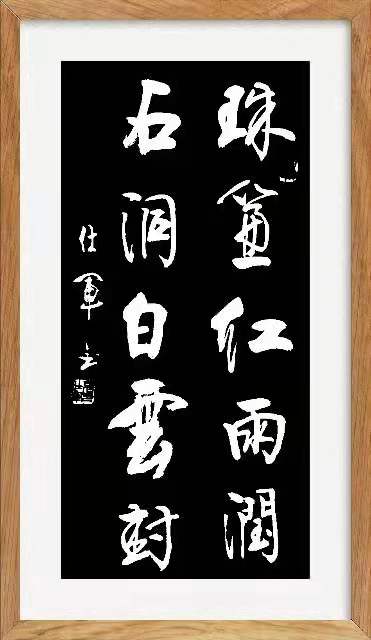 珠簾紅雨潤
石洞白雲封
仕軍书